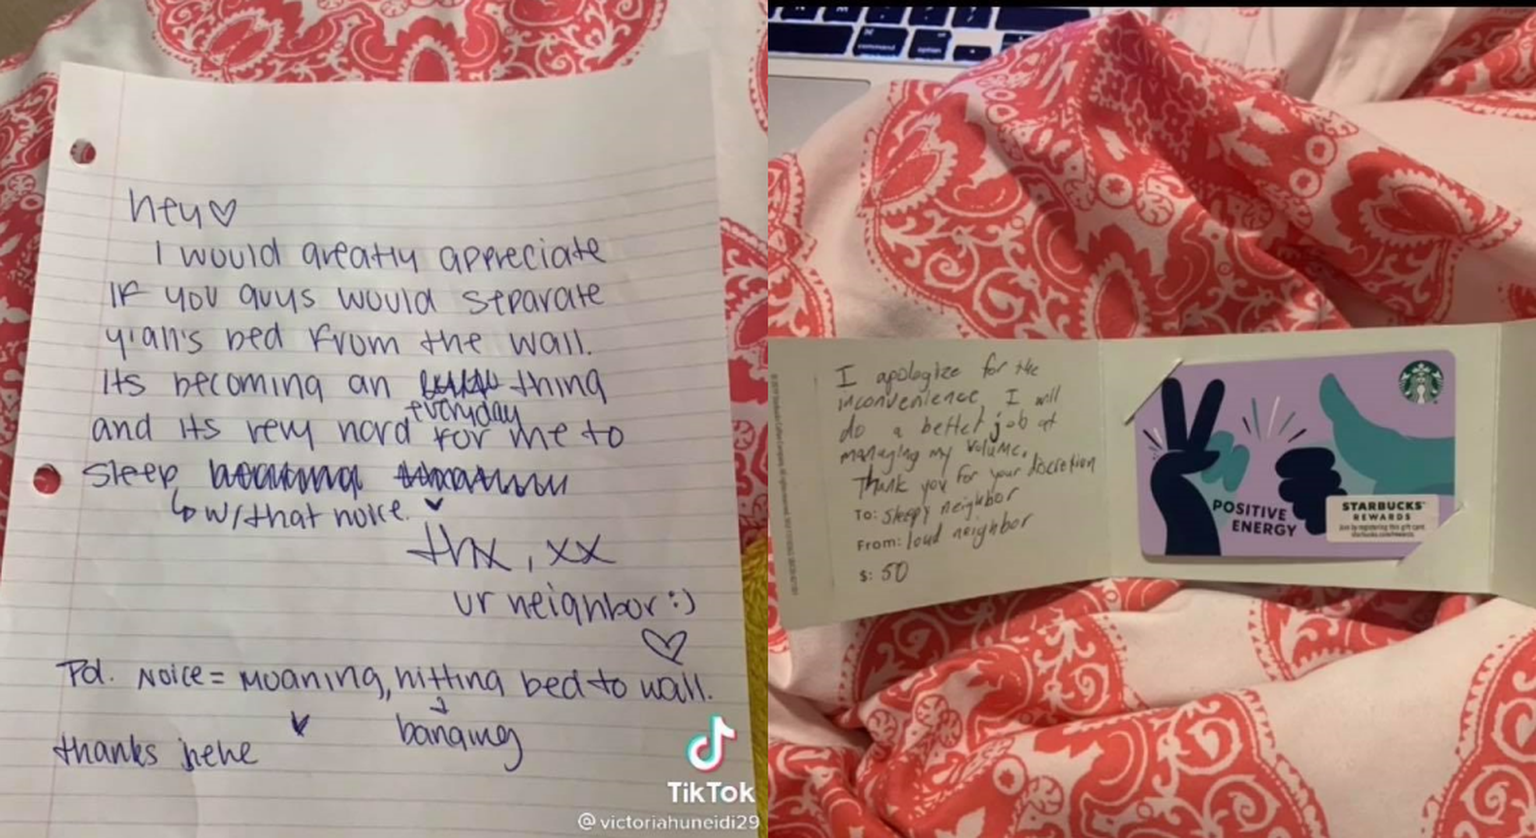 hey♡
I would greatly appreciate
IF you guys would separate
y'all's bed from the wall.
Its becoming an thing
everyday
and its very hard for me to
sleep
↳ w/that noice.
thx, xx
ur neighbor :)
♡
Pd. Noice = Moaning, hitting bed to wall.
↓
banging
thanks hehe
TikTok
@victoriahuneidi29
command
option
I apologize for the
inconvenience I will
do a better job at
managing my volume.
Thank you for your discretion
To: sleepy neighbor
From: loud neighbor
$: 50
POSITIVE
ENERGY
STARBUCKS
REWARDS
Join by registering this gift card.
starbucks.com/rewards